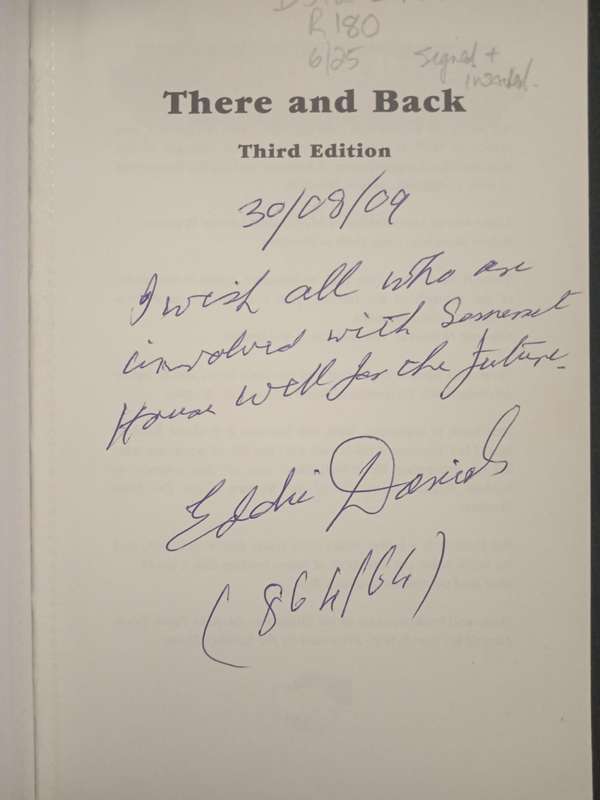 R180
6/25
signed +
inscribed.
There and Back
Third Edition
30/08/09
I wish all who are
involved with Somerset
House well for the future.
Eddie Daniels
(864/64)